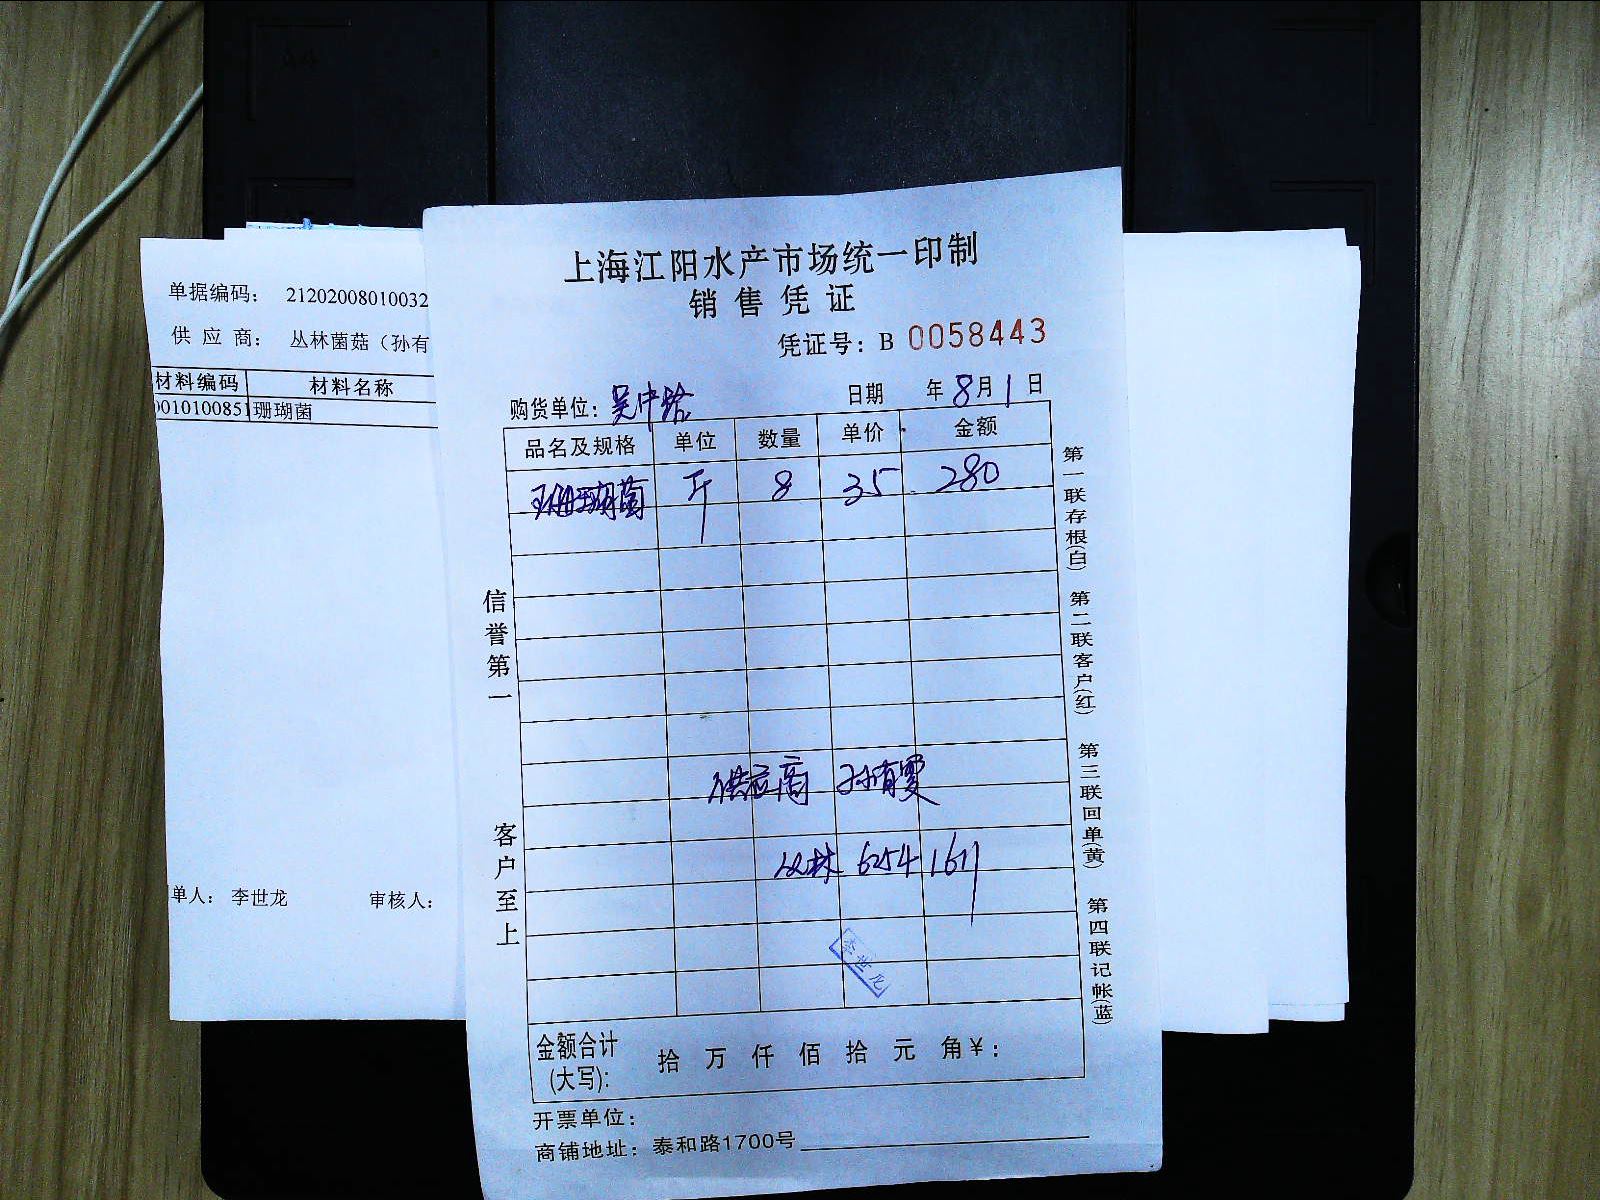 单据编码： 21202008010032
供 应 商： 丛林菌菇（孙有
材料编码 材料名称
0010100851 珊瑚菌
单人： 李世龙 审核人：
上海江阳水产市场统一印制
销 售 凭 证
凭证号：B 0058443
购货单位： 日期 年 8月 1 日
品名及规格 单位 数量 单价 金额
珊瑚菌 斤 8 35 280
供应商 孙有雯
丛林 62541611
李世龙
金额合计 拾 万 仟 佰 拾 元 角￥：
(大写)：
开票单位：
商铺地址： 泰和路1700号
信誉第一
客户至上
第一联存根(白)
第二联客户(红)
第三联回单(黄)
第四联记帐(蓝)